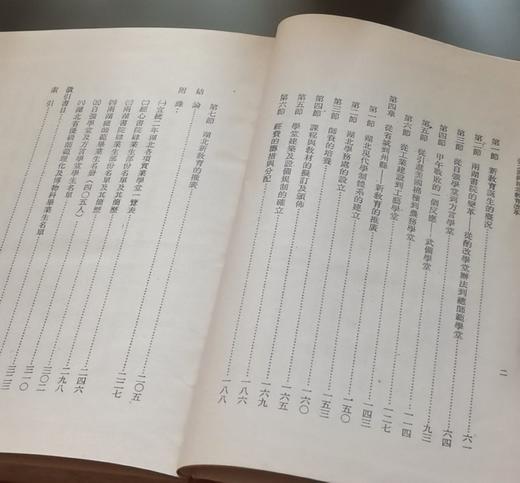 二
第一節 新教育誕生的概況……六一
第二節 兩湖書院的變革——從酌改學堂辦法到總師範學堂……六四
第三節 從自強學堂到方言學堂……九三
第四節 甲午戰敗的一個反應——武備學堂……一一四
第五節 從引進美國棉種到農務學堂……一二七
第六節 從工業建設到工藝學堂……一四三
第四章 從省城到州縣——新教育的推廣……一五〇
第一節 湖北現代學制體系的建立……一五三
第二節 湖北學務處的設立……一六〇
第三節 師資的培養……一六五
第四節 課程與教材的擬訂及頒佈……一六九
第五節 學堂建築及設備規制的確立……一八六
第六節 經費的籌措與分配……一八八
第七節 湖北新教育的推廣……
結論……
附錄：
㈠宣統二年湖北各項實業學堂一覽表……
㈡經心書院肄業生部份名單及其簡歷……
㈢兩湖書院肄業生部份名單及其簡歷……
㈣兩湖總師範畢業生名冊（四〇五人）……二四六
㈤自強學堂及方言學堂學生名單……二九八
㈥湖北省優級師範理化及博物科畢業生名單……三〇二
徵引書目……三一〇
索引……三二三